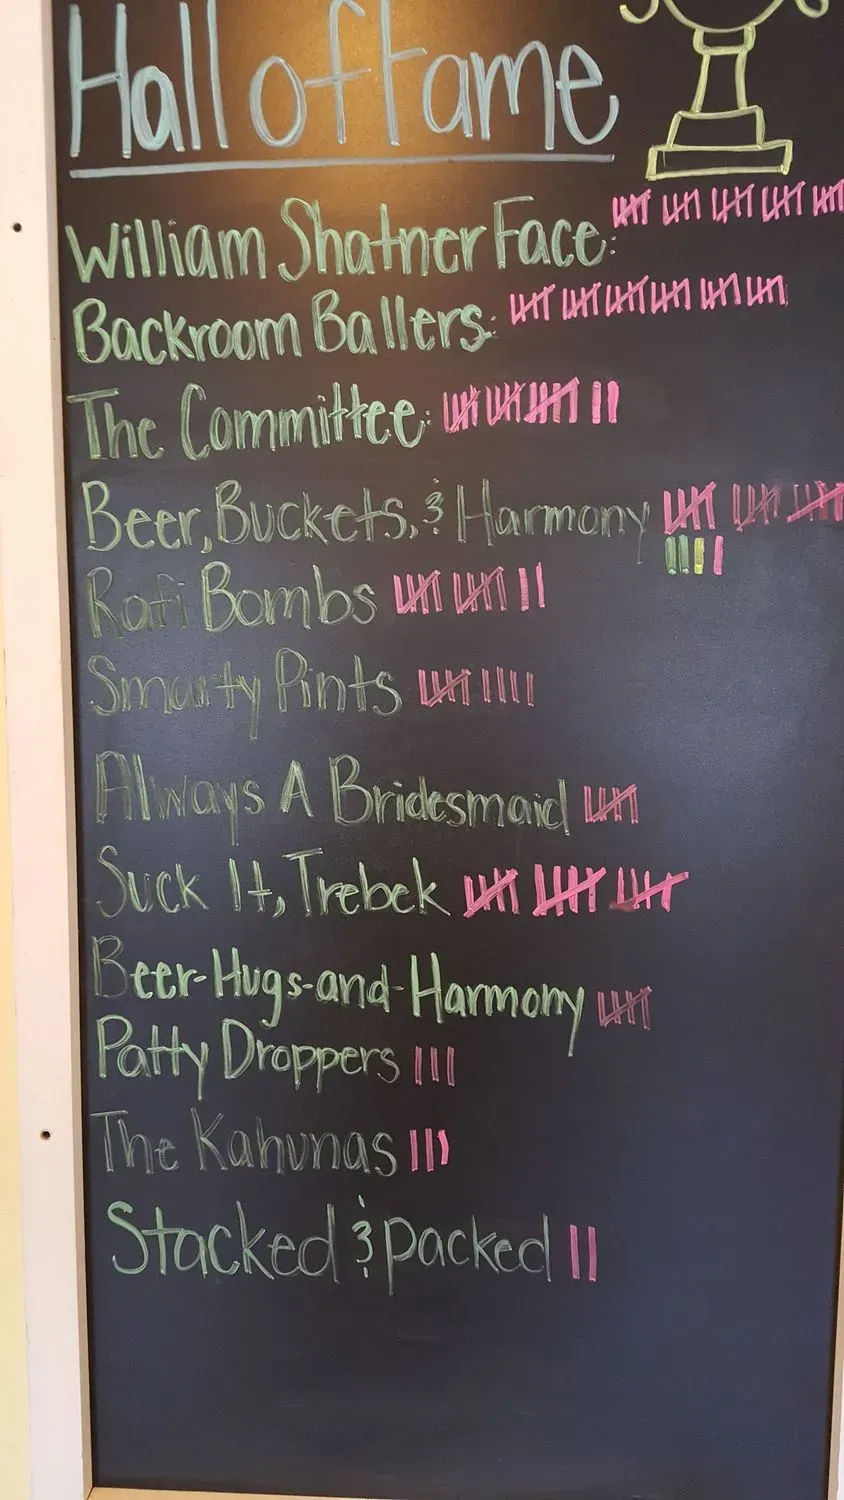 Hall of Fame
William Shatner Face:
Backroom Ballers:
The Committee:
Beer, Buckets, & Harmony
Rafi Bombs
Smarty Pints
Always A Bridesmaid
Suck It, Trebek
Beer-Hugs-and-Harmony
Patty Droppers
The Kahunas
Stacked & packed